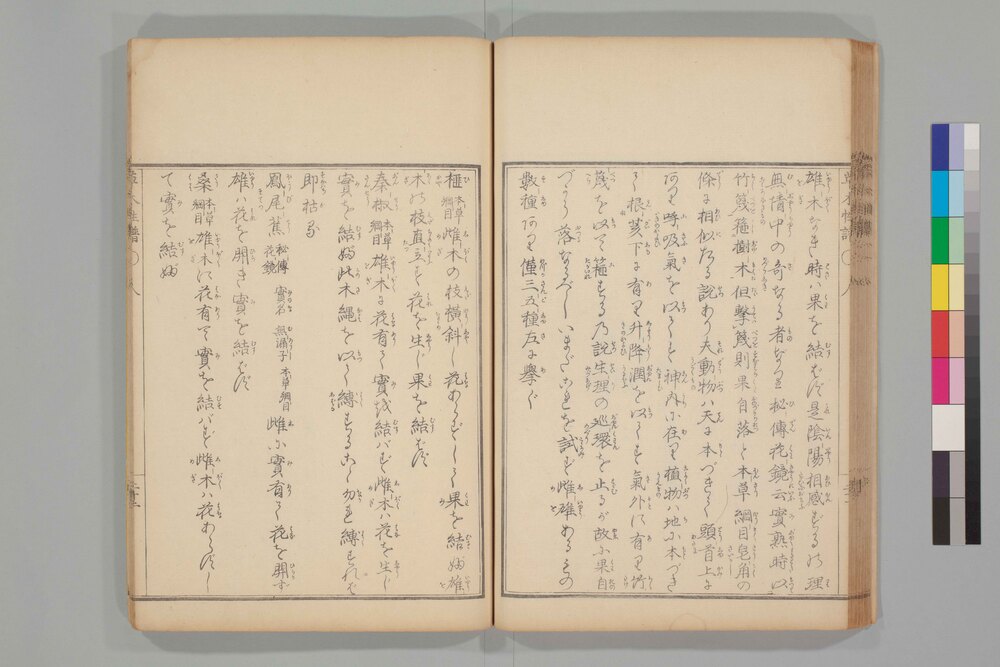 雄木なき時ハ果を結ばず是陰陽相感ずるの理
無情中の奇なる者なり秘傳花鏡云實熟時以
竹篾箍樹木但擊篾則果自落と本草綱目皂角の
條に相似たる説あり夫動物ハ天に本づきて頭首上に
あり呼吸氣を以てし神内に在り植物ハ地に本づき
て根荄下に有り升降潤を以てし氣外に有り竹
篾を以て箍するの説生理の巡環を止るが故に果自
づから落るなるべしいまだこれを試ず雌雄あるもの
數種あり僅三五種左に擧ぐ
榧 本草綱目 雌木の枝横斜し花あらずして果を結ぶ雄
木の枝直立して花を生じ果を結ばず
秦椒 本草綱目 雄木に花有て實を結バず雌木ハ花を生じ
實を結ぶ此木縄を以て縛すること勿れ縛すれば
即枯る
鳳尾蕉 秘傳花鏡 實名 無漏子 本草綱目 雌に實有て花を開ず
雄ハ花を開き實を結ばず
桑 本草綱目 雄木に花有て實を結バず雌木ハ花あらずし
て實を結ぶ